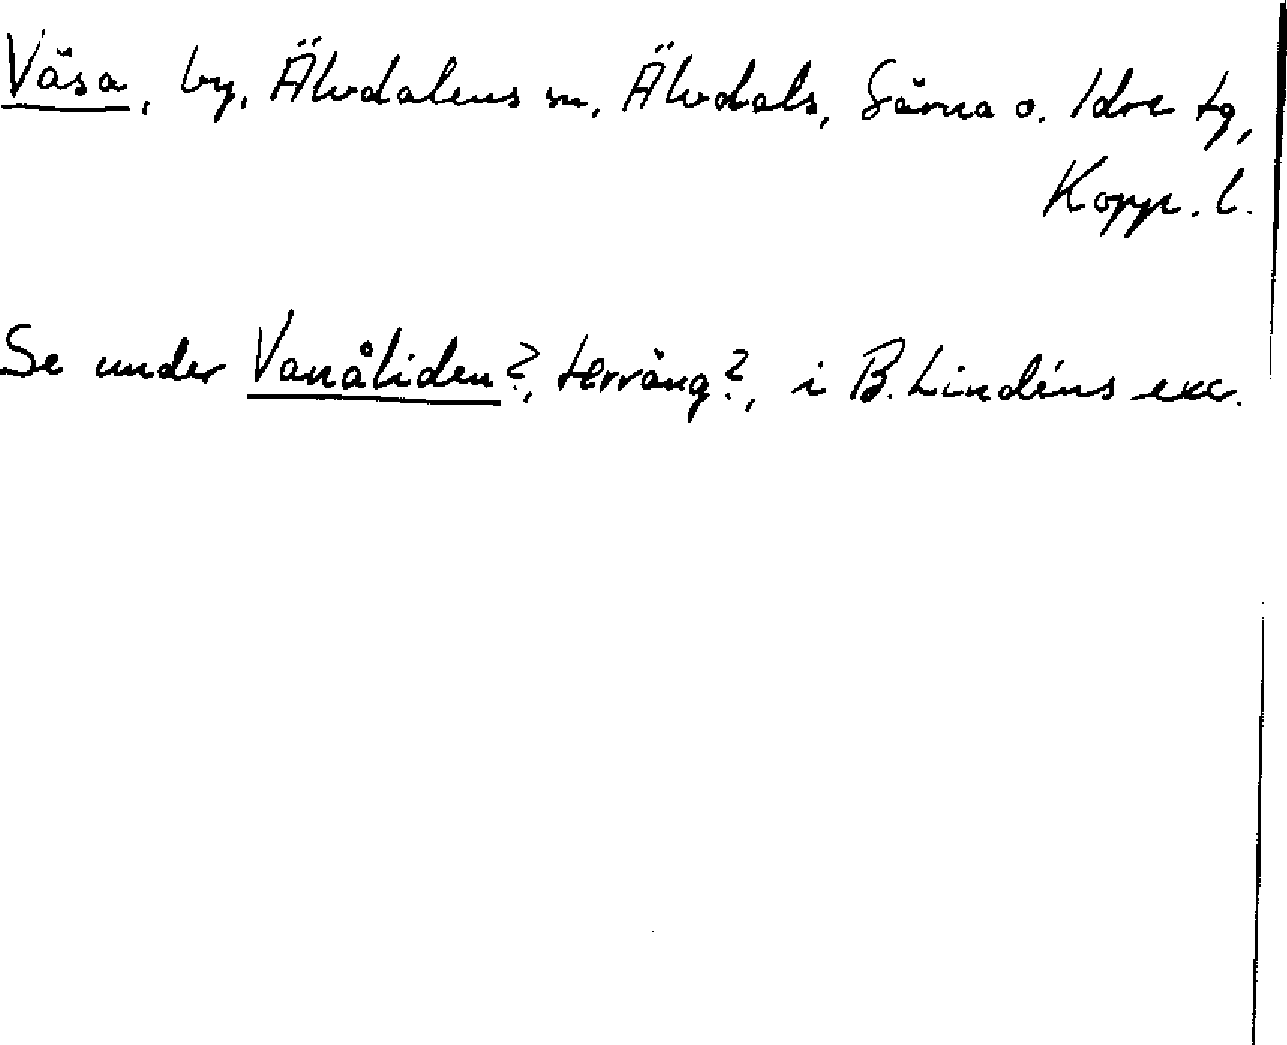 Väsa, by, Älvdalens sn, Älvdals, Särna o. Idre tg,
Kopp. l.
Se under Vanåliden?, terräng?, i B. Lindéns exc.